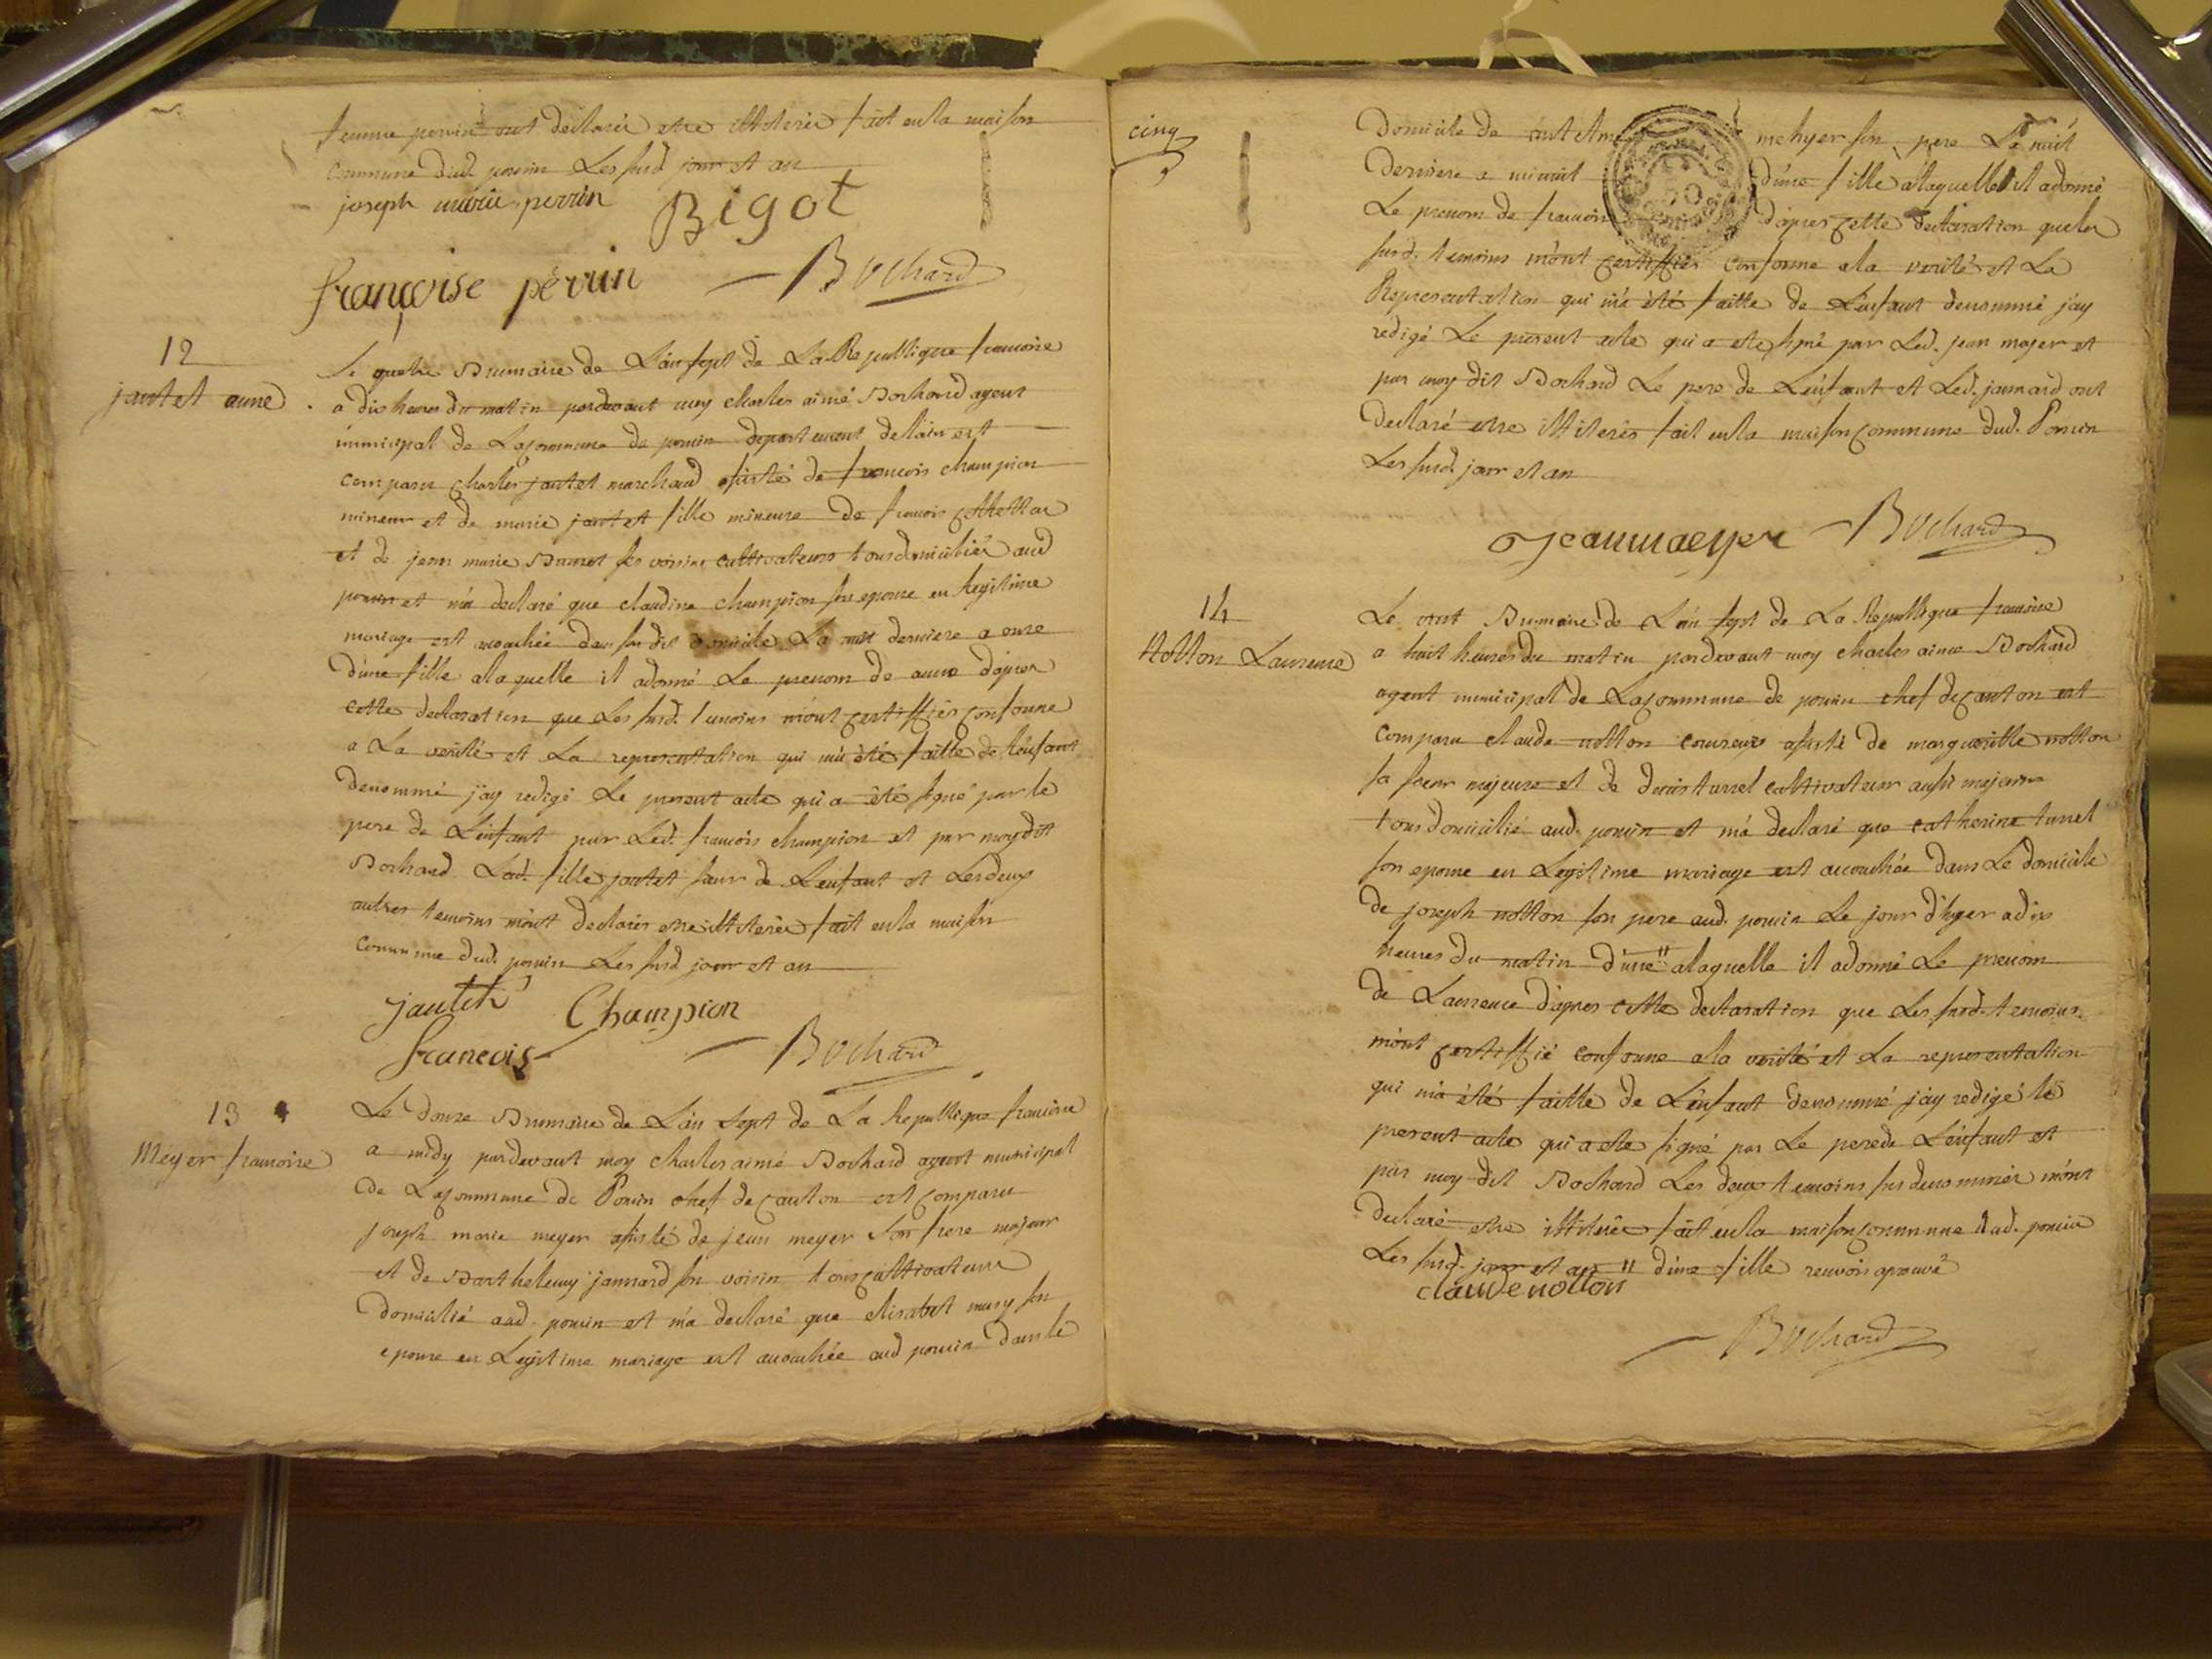 femme perrin ont déclarés etre illiterés fait en la maison
commune dud. poncin Les susd jour et an
joseph marie perrin Bigot
françoise pérrin Bochard
12
jantet anne
Le quatre Brumaire de L'an sept de La Republique francoise
a dix heures du matin pardevant moy charles aimé Bochard agent
municipal de La commune de poncin departement de l'ain est
comparu charles jantet marchand assisté de francois champion
mineur et de marie jantet fille mineure de francois
et de jean marie Brunet ses voisins cultivateurs tous domiciliés aud
poncin et m'a declaré que claudine champion son epouse en legitime
mariage est accouchée dans son dit domicile La nuit derniere a onze
d'une fille a laquelle il a donné Le prenom de anne d'apres
cette declaration que Les susd. temoins m'ont certiffiés conforme
a La verité et La representation qui m'a été faitte de L'enfant
denommé j'ay redigé Le present acte qui a été signé par le
pere de L'enfant par Led. francois champion et par moy dit
Bochard Lad. fille jantet sœur de L'enfant et Les deux
autres temoins m'ont declarés etre illiterés fait en la maison
commune dud. poncin Les susd jour et an
jantet Champion
francois Bochard
13
Meyer francoise
Le douze Brumaire de L'an sept de La Republique francoise
a midy pardevant moy charles aimé Bochard agent municipal
de La commune de Poncin chef de canton est comparu
joseph marie meyer assisté de jean meyer son frere majeur
et de Barthelemy jannard son voisin tous cultivateurs
domicilié aud. poncin et m'a declaré que elisabet mury son
epouse en Legitime mariage est accouchée aud poncin dans le
cinq
Domicile de mehyer son pere La nuit
Derniere a minuit d'une fille a laquelle il a donné
Le prenom de francoise d'apres cette declaration que les
susd. temoins m'ont certiffiés conforme a la verité et La
Representation qui m'a été faitte de L'enfant denommé j'ay
redigé Le present acte qui a ete signé par Led. jean mayer et
par moy dit Bochard Le pere de L'enfant et Led. jannard ont
Declaré etre illiterés fait en la maison commune dud. Poncin
Les susd. jour et an
jeanmaeyer Bochard
14
Notton Laurence
Le vint Brumaire de L'an sept de La Republique francoise
a huit heures du matin pardevant moy charles aimé Bochard
agent municipal de La commune de poncin chef de canton est
comparu claude notton assisté de margueritte notton
sa sœur majeure et de denis turrel cultivateur aussi majeur
tous domicilié aud. poncin et m'a declaré que catherine turrel
son epouse en Legitime mariage est accouchée dans Le domicile
de joseph notton son pere aud. poncin Le jour d'hyer a dix
heures du matin d'une " a laquelle il a donné Le prenom
de Laurence d'apres cette declaration que Les susd. temoins
m'ont certiffié conforme a la verité et La representation
qui m'a été faitte de L'enfant denommé j'ay redigé le
present acte qui a ete signé par Le pere de L'enfant et
par moy dit Bochard Les deux temoins sus denommés m'ont
declaré etre illiterés fait en la maison commune dud. poncin
Les susd. jour et an " d'une fille renvois aprouvé
claude notton
Bochard